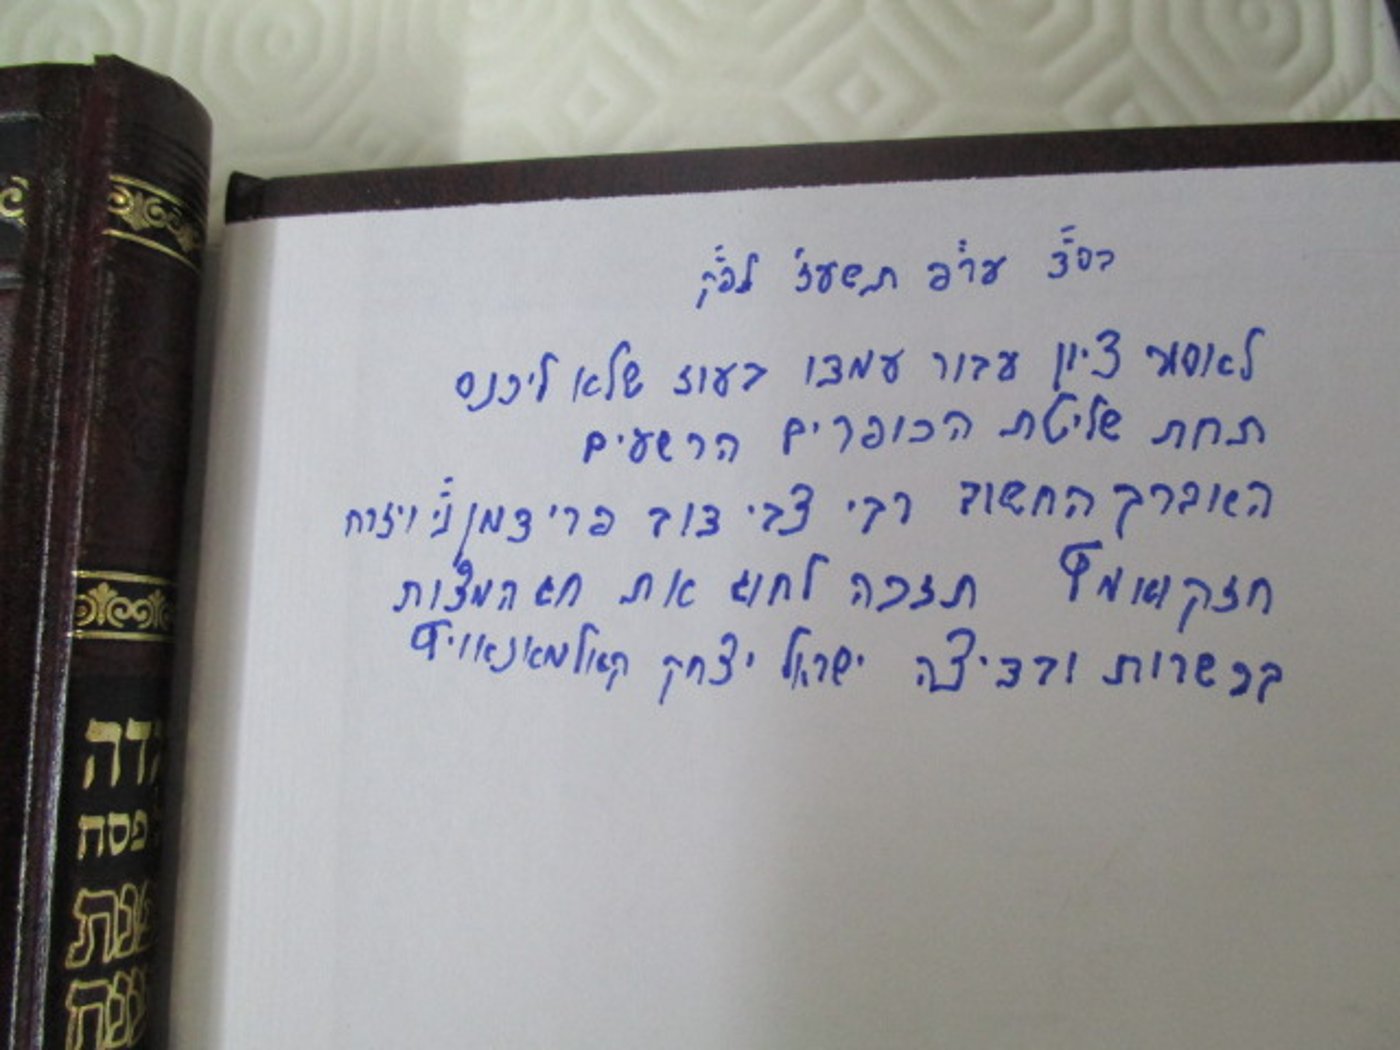 בס"ד ער"פ תשע"ז לפ"ק
לאסיר ציון עבור עמדו בעוז שלא ליכנס
תחת שליטת הכופרים הרשעים
האברך החשוב רבי צבי דוב פרידמן ני' ויזרח
חזק ואמץ תזכה לחוג את חג המצות
בכשרות ובדיצה ישראל יצחק קאלמאנאוויץ
פסח